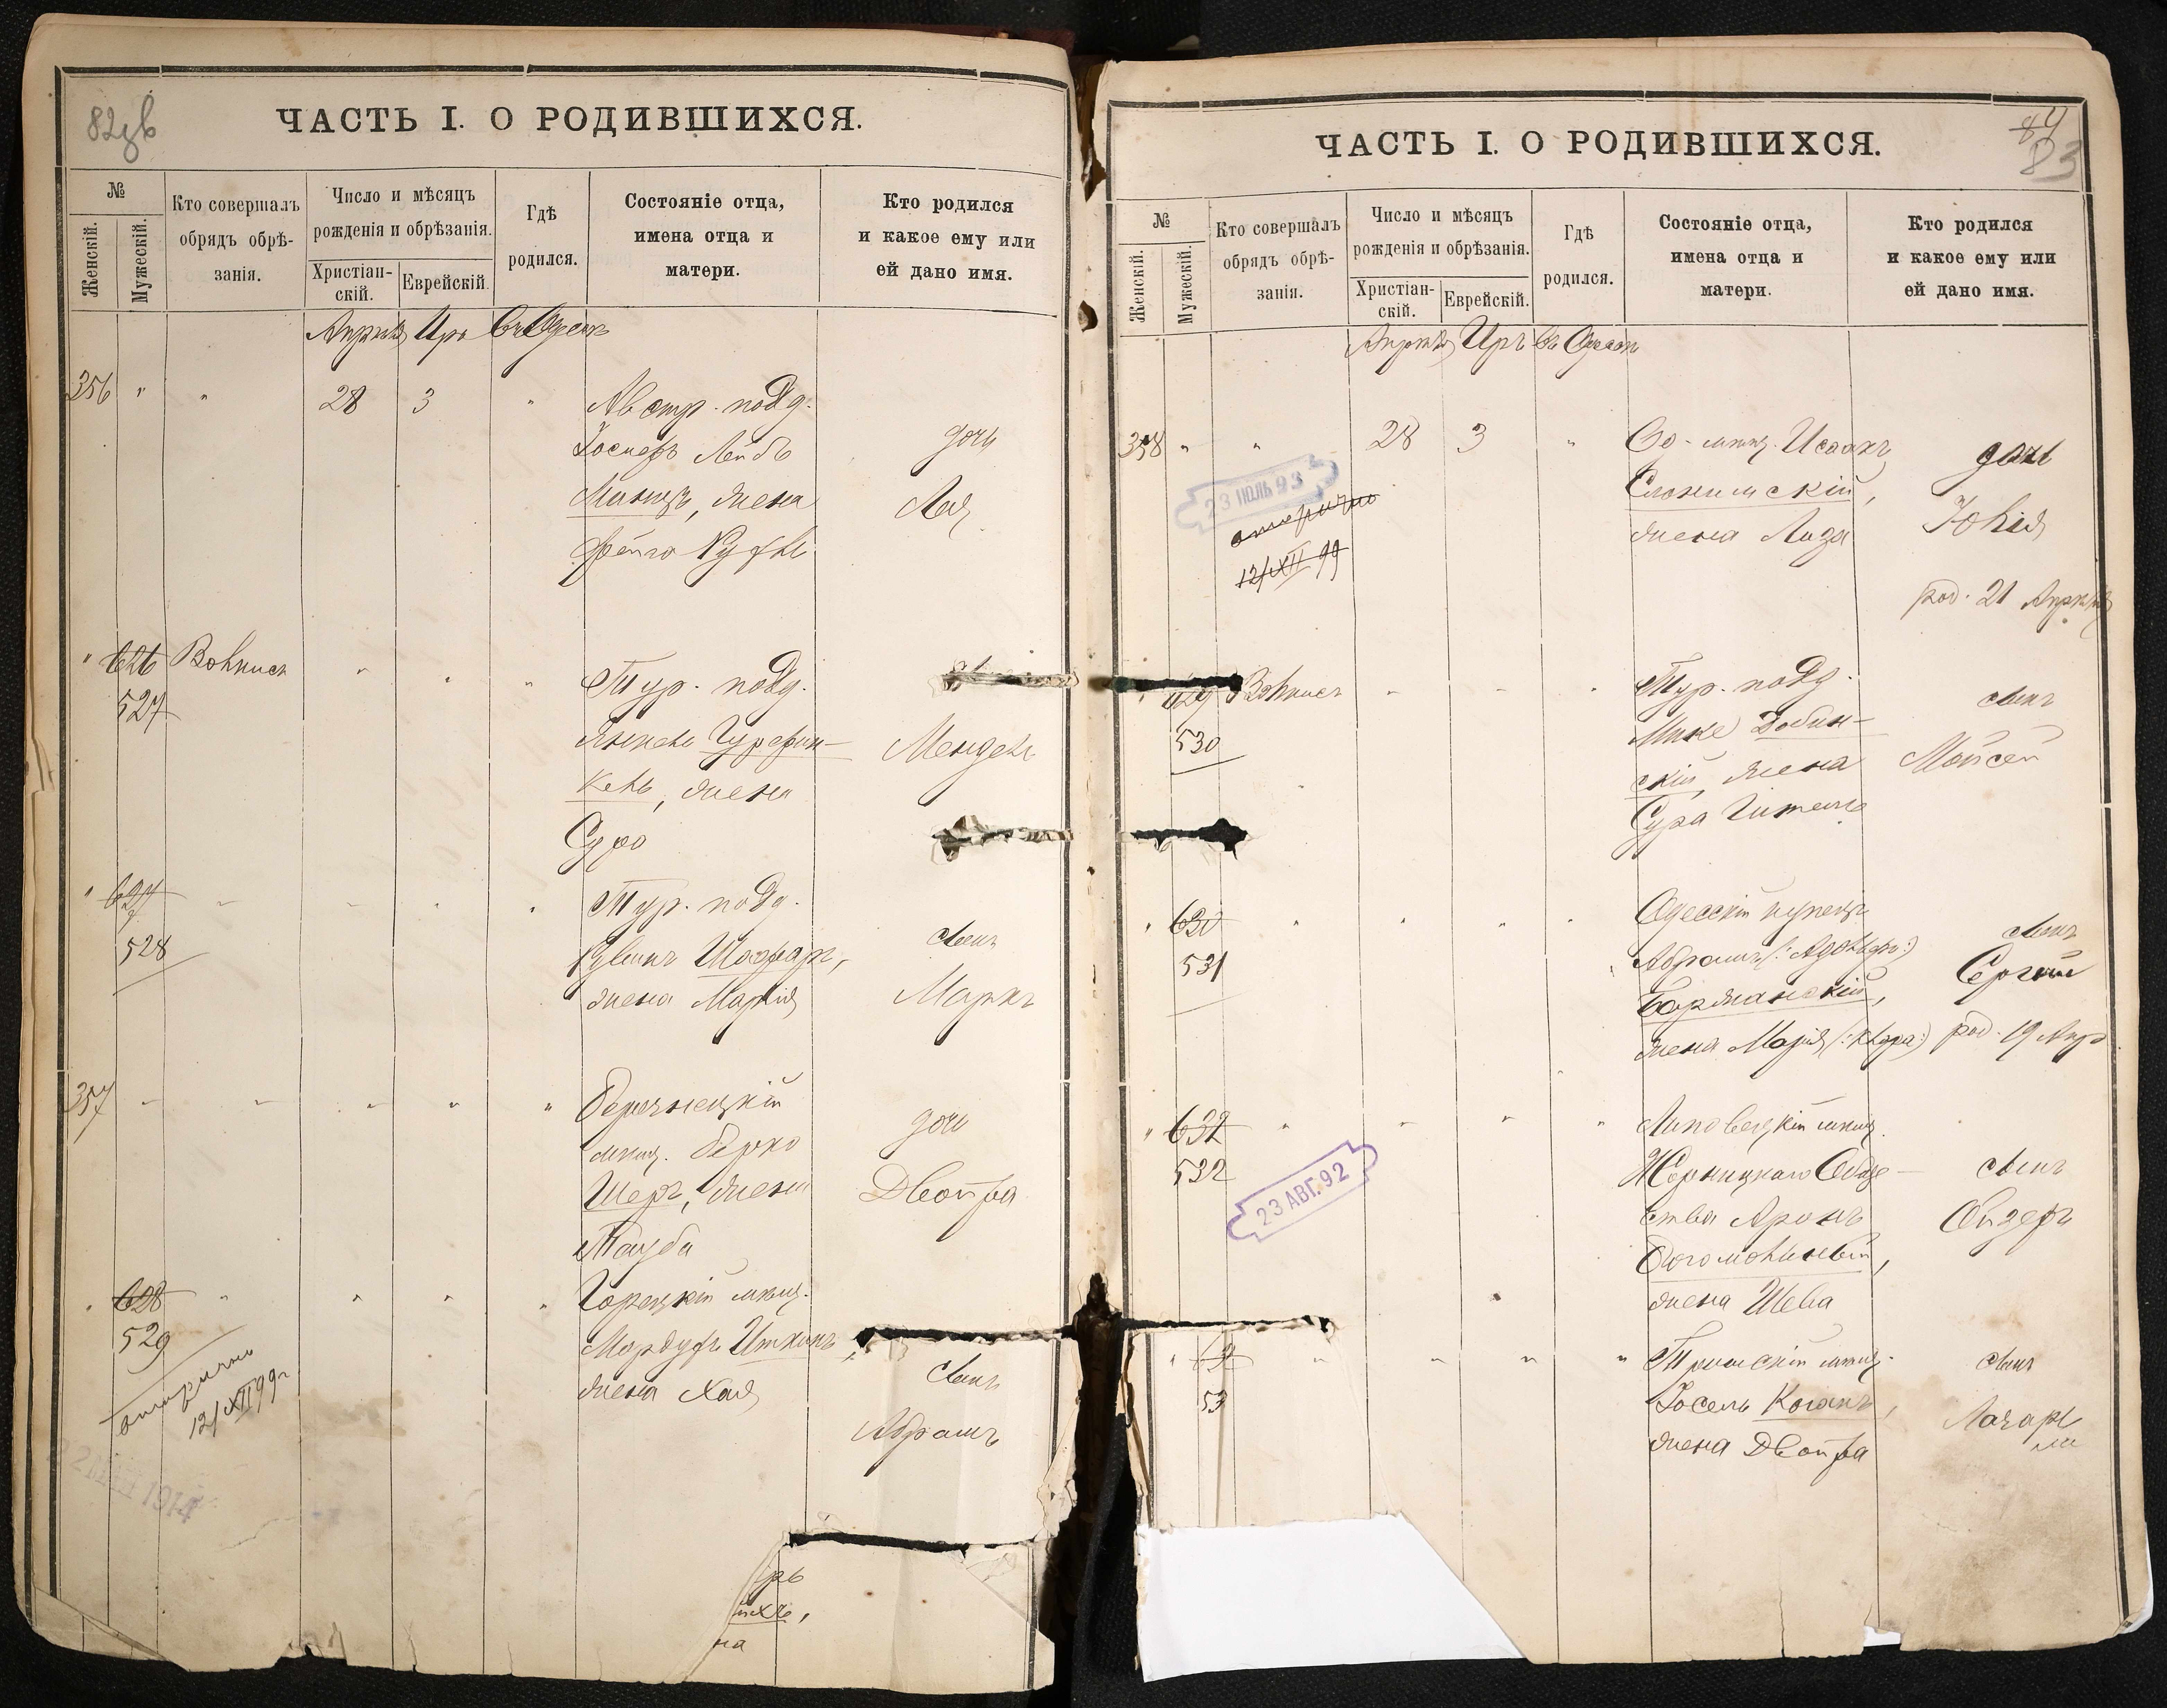 82зв
ЧАСТЬ I. О РОДИВШИХСЯ.
№
Женскій.
Мужескій.
Кто совершалъ
обрядъ обрѣ-
занія.
Число и мѣсяцъ
рожденія и обрѣзанія.
Христіан-
скій.
Еврейскій.
Гдѣ
родился.
Состояніе отца,
имена отца и
матери.
Кто родился
и какое ему или
ей дано имя.
Апрѣль Иръ Въ Одессѣ
356 " " 28 3 " Австр. подд.
Іосифъ Лейбъ
Манцъ, жена
дочь
Лея
" 626 Вольписъ " " " Тур. подд.
527
Янкель Гурфин-
кель, жена
Сура
Мендель
" 627 " " " " Тур. подд.
528
Рувинъ Шафаръ,
жена Марія
сынъ
Маркъ
357 " " " " "
мѣщ. Берко
Шеръ, жена
Тауба
дочь
Двойра
" 628 " " " " Горецкій мѣщ.
529
Мордухъ Иткинъ,
жена Хая
сынъ
Абрамъ
12/XII 99г
1914
рь
ихъ,
на
84
83
ЧАСТЬ I. О РОДИВШИХСЯ.
№
Женскій.
Мужескій.
Кто совершалъ
обрядъ обрѣ-
занія.
Число и мѣсяцъ
рожденія и обрѣзанія.
Христіан-
скій.
Еврейскій.
Гдѣ
родился.
Состояніе отца,
имена отца и
матери.
Кто родился
и какое ему или
ей дано имя.
Апрѣль Иръ Въ Одессѣ
358 " " 28 3 " Од. мѣщ. Исаакъ
Слонимскій,
жена Лиза
дочь
Юлія
род. 21 Апрѣля
23 ІЮЛЬ 93
12/XII 99
" 629 Вольписъ " " " Тур. подд.
530
Мике Дабин-
скій, жена
Сура Гитель
сынъ
Мойсей
" 630 " " " " Одесскій купецъ
531
Абрамъ (:Адольфъ:)
Боржанскій,
жена Марія (:Клара:)
сынъ
Сергѣй
род. 19 Апр
" 631 " " " " Липовецкій мѣщ.
532
Жорнищкаго Обще-
ства Аронъ
Богомольный,
жена Шева
сынъ
Ойзеръ
23 АВГ. 92
" " " " "
53
Іосель Коганъ,
жена Двойра
сынъ
Лазарь